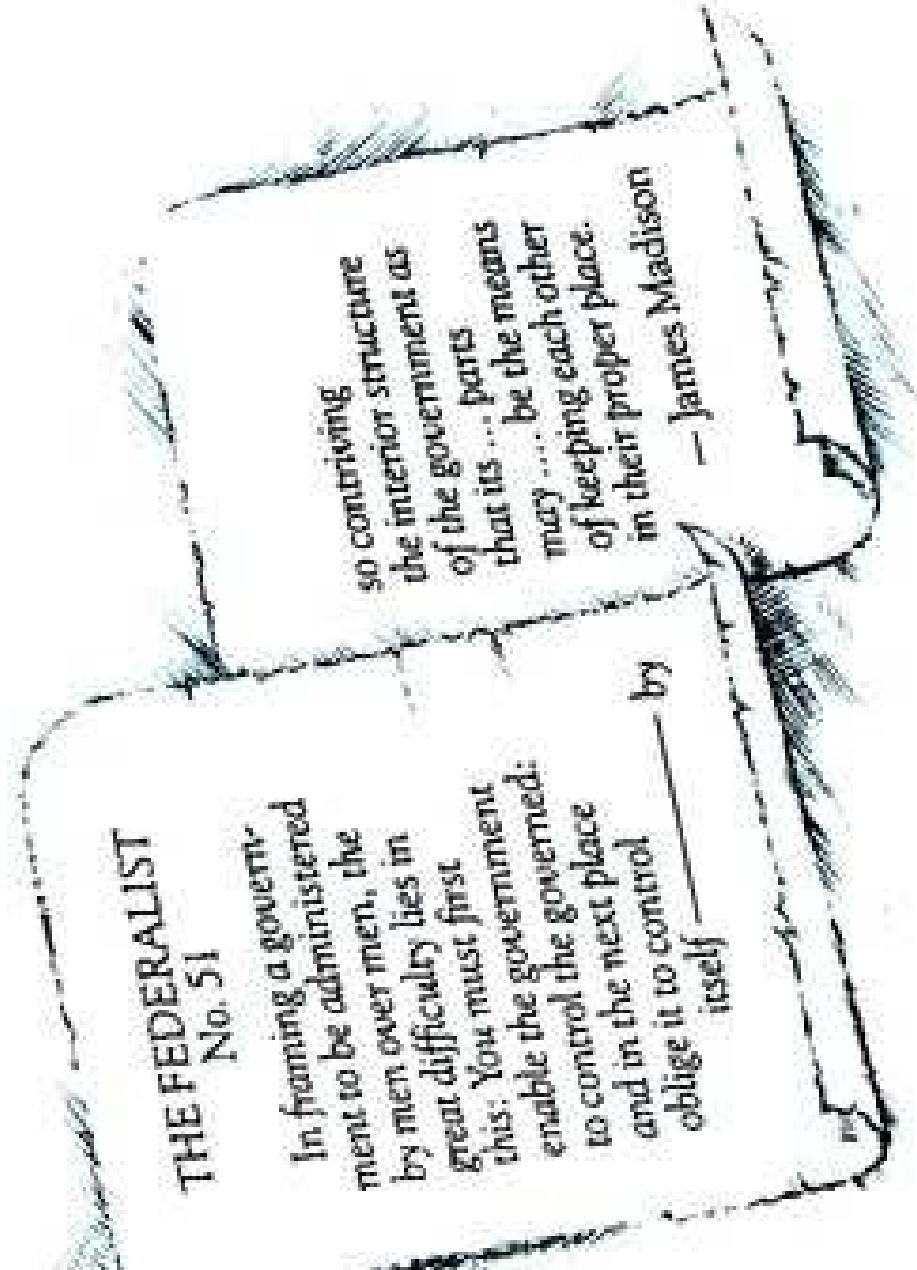 THE FEDERALIST
No. 51
In framing a govern-
ment to be administered
by men over men, the
great difficulty lies in
this: You must first
enable the government
to control the governed:
and in the next place
oblige it to control
itself ——— by
so contriving
the interior structure
of the government as
that its .... parts
may .... be the means
of keeping each other
in their proper place.
— James Madison